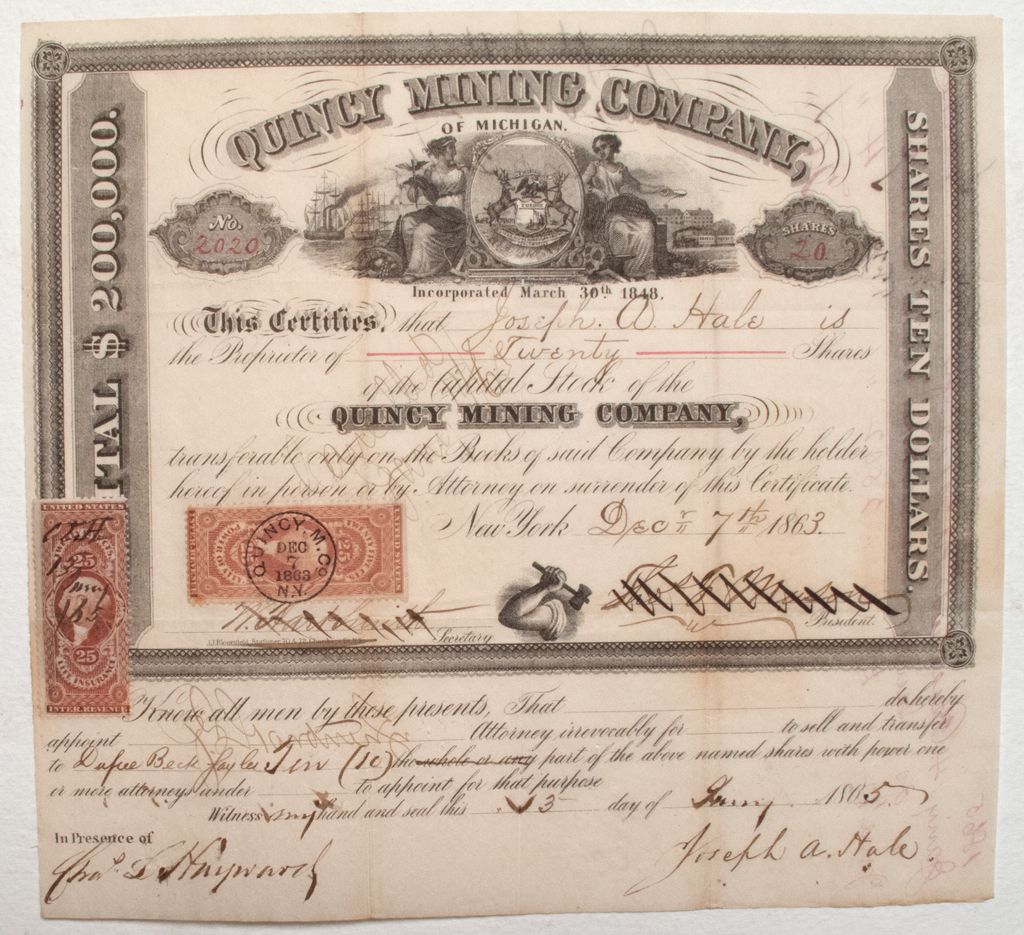 QUINCY MINING COMPANY,
OF MICHIGAN.
No.
2020
SHARES
20
Incorporated March 30th 1848.
This Certifies, that Joseph. A. Hale is
the Proprietor of Twenty Shares
of the Capital Stock of the
QUINCY MINING COMPANY,
transferable only on the Books of said Company by the holder
hereof in person or by Attorney on surrender of this Certificate.
New York Decr 7th 1863.
TAL $ 200,000.
SHARES TEN DOLLARS.
QUINCY. M. Co.
DEC
7
1863
N.Y.
25
Secretary
President.
J.J. Bloomfield, Stationer
UNITED STATES
25
25
LIFE INSURANCE
INTER. REVENUE
Know all men by these presents, That do hereby
appoint Attorney irrevocably for to sell and transfer
to Ten (10) the whole or any part of the above named shares with power one
or more attorneys under to appoint for that purpose
Witness my hand and seal this 13 day of Jany. 1865
In Presence of
Chas L Hayward
Joseph A. Hale.